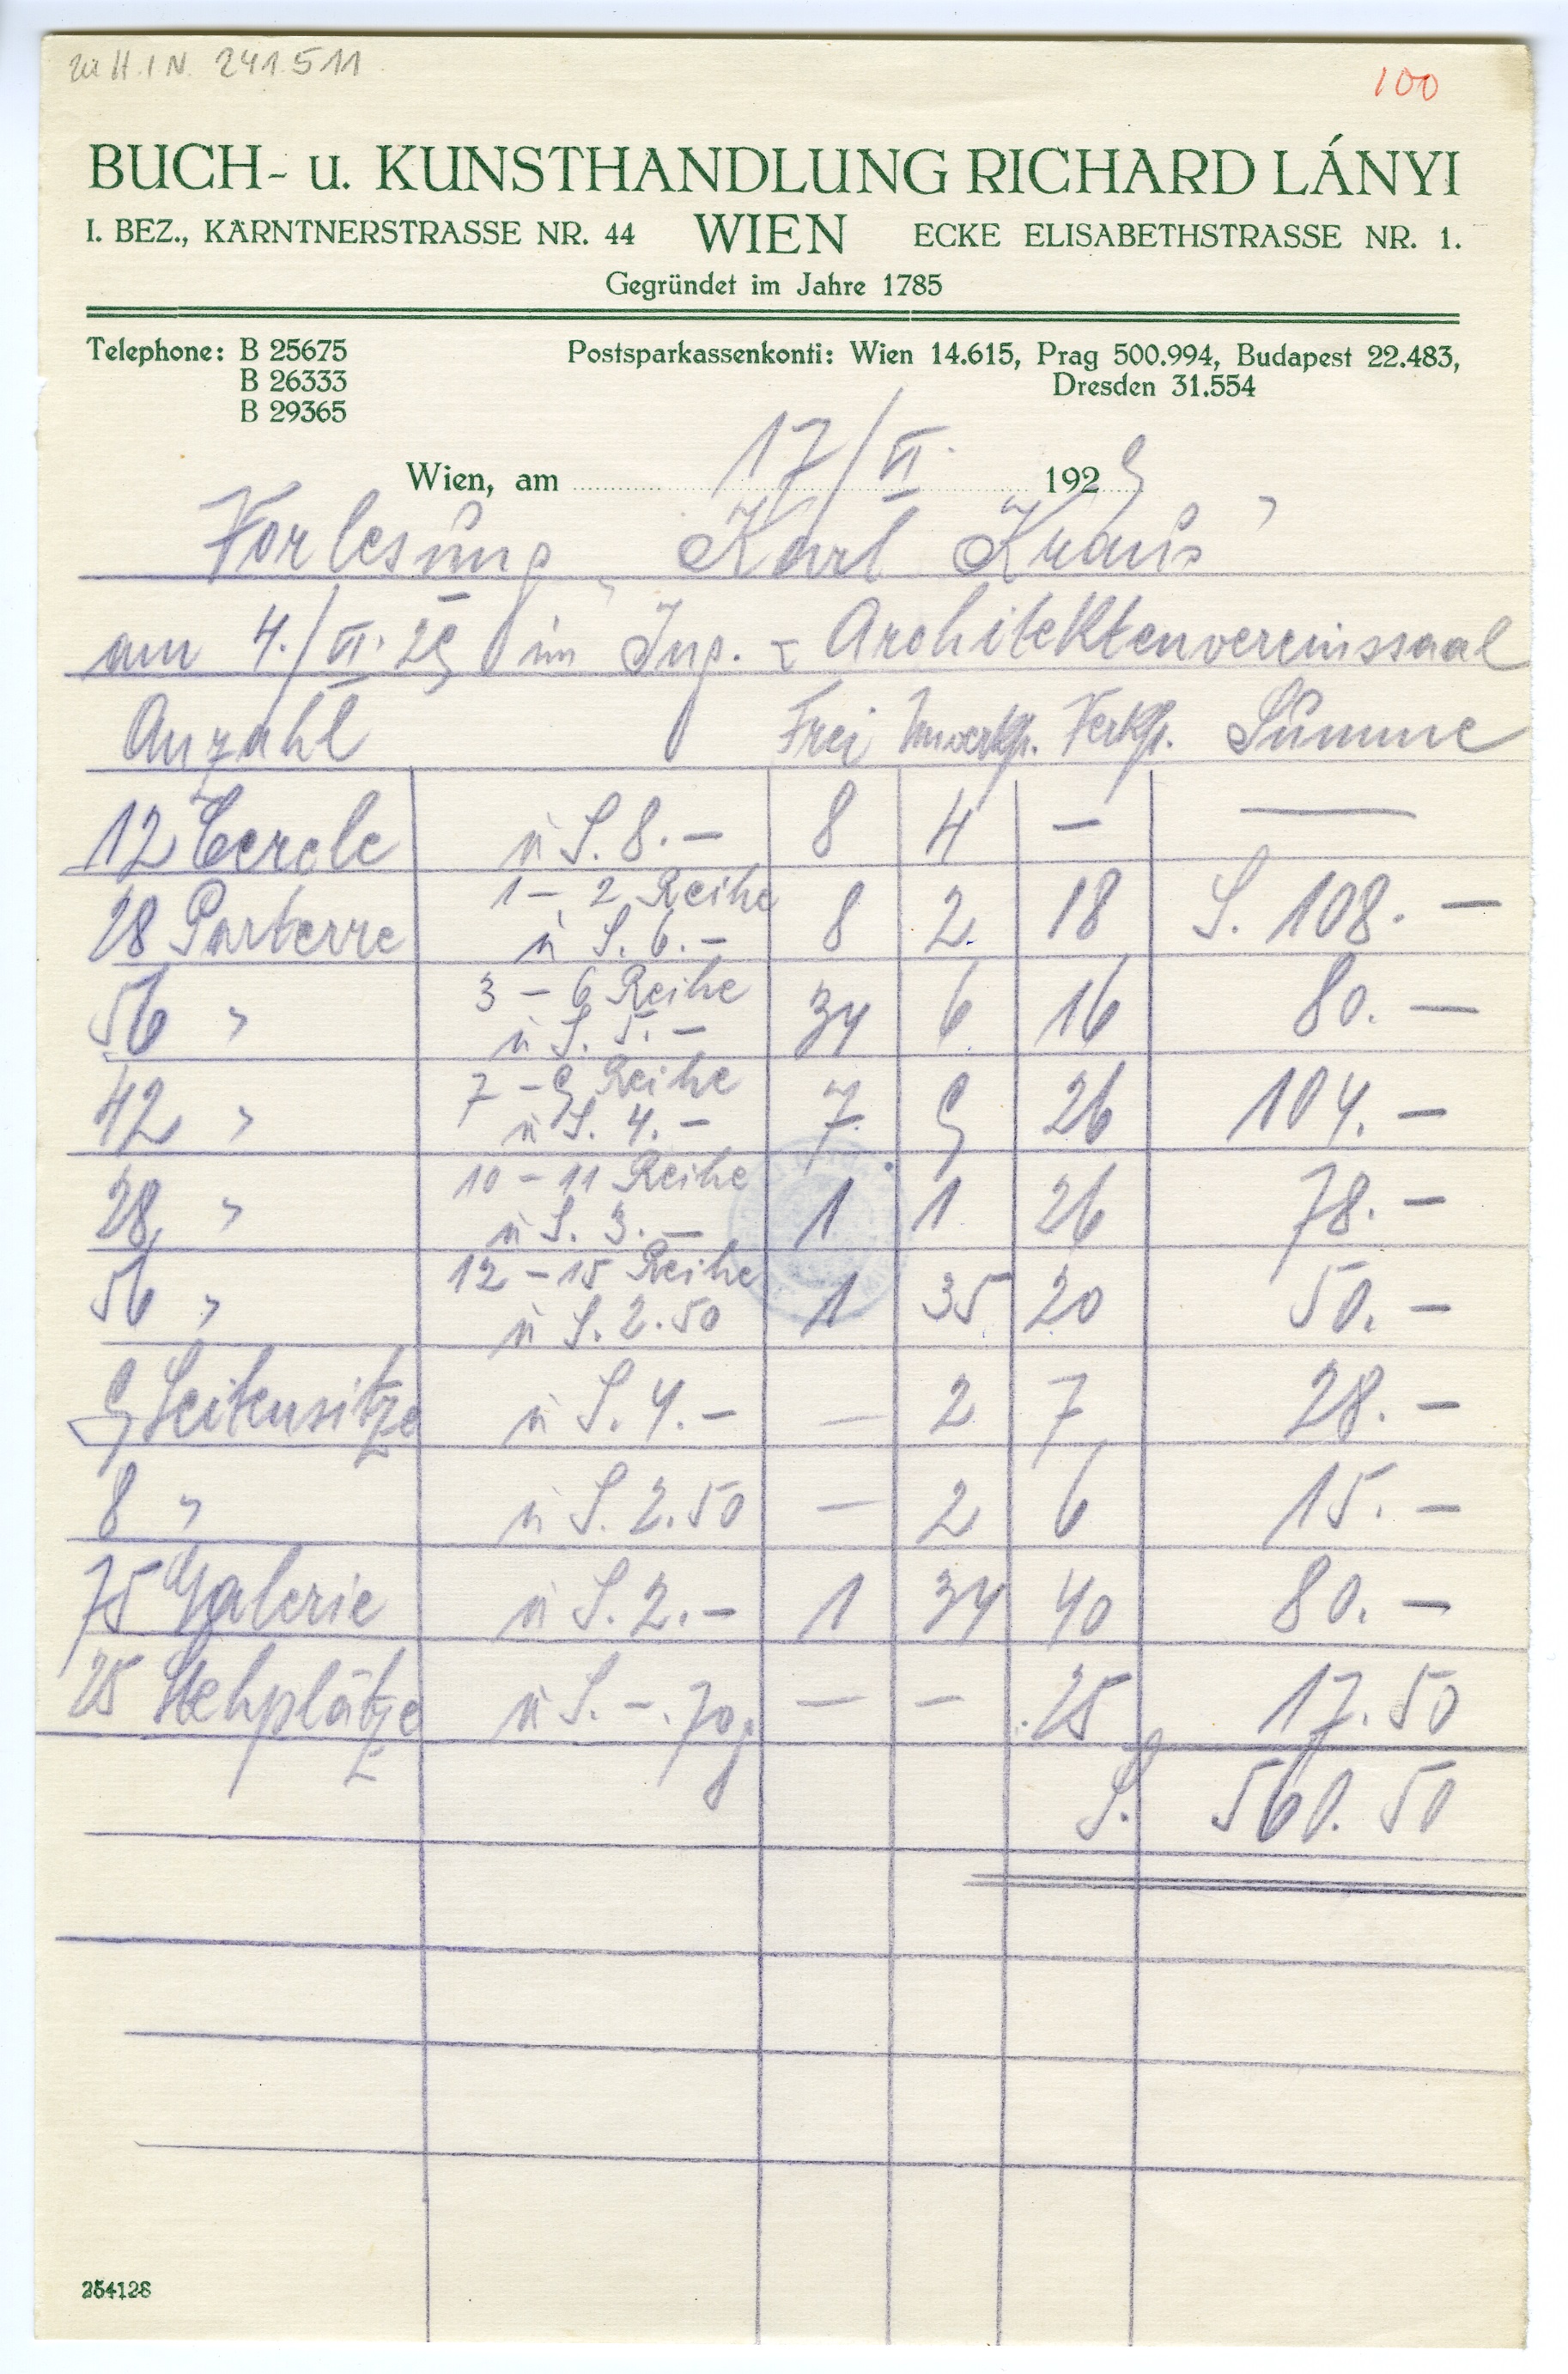 zu H.I.N. 241.511
100
BUCH- u. KUNSTHANDLUNG RICHARD LÁNYI
I. BEZ., KÄRNTNERSTRASSE NR. 44 WIEN ECKE ELISABETHSTRASSE NR. 1.
Gegründet im Jahre 1785
Telephone: B 25675 Postsparkassenkonti: Wien 14.615, Prag 500.994, Budapest 22.483,
B 26333 Dresden 31.554
B 29365
Wien, am 17/VI. 1929
Vorlesung „Karl Kraus"
am 4./VI. 29 im Ing. - Architektenvereinssaal
Anzahl Frei Unverkft. Verkft. Summe
12 Cercle à S. 8.— 8 4 — —
28 Parterre 1 – 2 Reihe à S. 6.— 8 2 18 S. 108.—
56 " 3 – 6 Reihe à S. 5.— 34 6 16 80.—
42 " 7 – 9 Reihe à S. 4.— 7 9 26 104.—
28 " 10 – 11 Reihe à S. 3.— 1 1 26 78.—
56 " 12 – 15 Reihe à S. 2.50 1 35 20 50.—
9 Seitensitze à S. 4.— — 2 7 28.—
8 " à S. 2.50 — 2 6 15.—
75 Galerie à S. 2.— 1 34 40 80.—
25 Stehplätze à S. –.70g — — 25 17.50
S. 560.50
254128